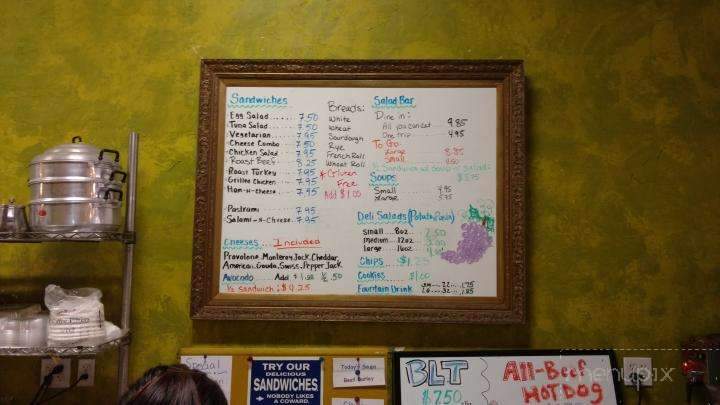 Sandwiches
Egg Salad ..... 7.50
Tuna Salad ..... 7.50
Vegetarian ..... 7.95
Cheese Combo ..... 7.50
Chicken Salad ..... 7.95
Roast Beef ..... 8.25
Roast Turkey ..... 7.95
Grilled Chicken ..... 7.95
Ham-n-cheese ..... 7.95
Pastrami 7.95
Salami-n-Cheese 7.95
Cheeses... Included
Provolone, Monterey Jack, Cheddar,
American, Gouda, Swiss, Pepper Jack
Avocado Add
½ sandwich: $4.25
Breads:
White
Wheat
Sourdough
Rye
French Roll
Wheat Roll
* Gluten
Free
Add $1.00
Salad Bar
Dine in:
All you can eat 9.85
One trip 4.95
To Go:
Large 8.85
Small
½ Sandwich w/ Soup or Salad:
Soups
Small 4.95
Large 5.75
Deli Salads
small 8oz. 2.50
medium 12oz
large 16oz
Chips $1.25
Cookies $1.00
Fountain Drink
Special
TRY OUR
DELICIOUS
SANDWICHES
NOBODY LIKES
A COWARD.
Today's Soup
Beef Barley
BLT
$7.50
All-Beef
HOTDOG
menupix